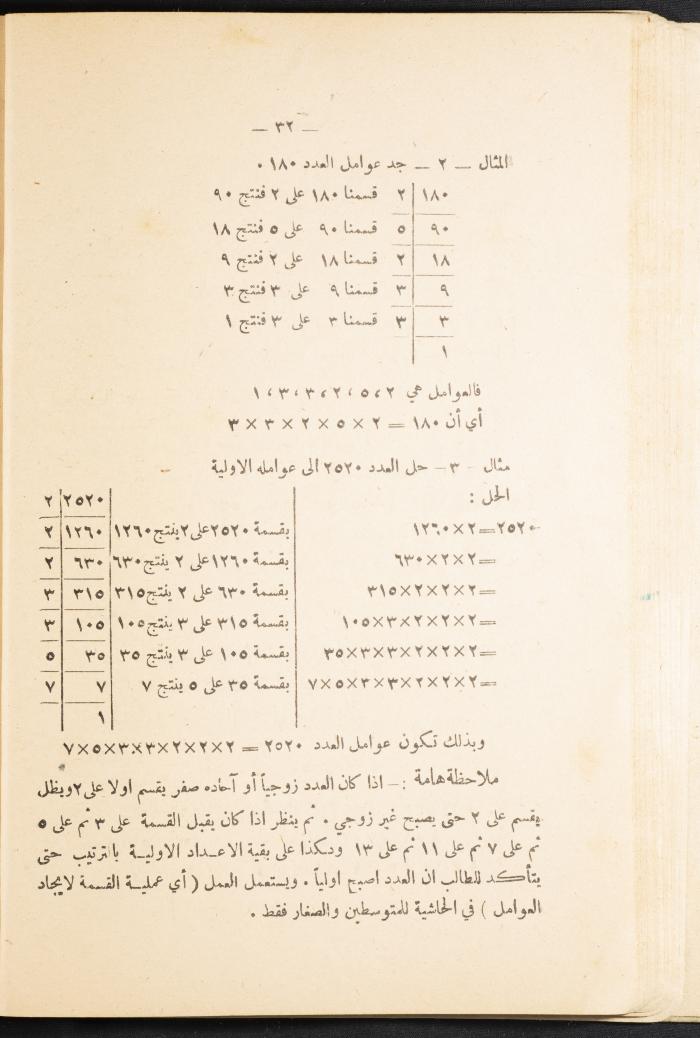 — ٣٢ —
المثال — ٢ — جد عوامل العدد ١٨٠ .
١٨٠ | ٢ قسمنا ١٨٠ على ٢ فنتج ٩٠
٩٠ | ٥ قسمنا ٩٠ على ٥ فنتج ١٨
١٨ | ٢ قسمنا ١٨ على ٢ فنتج ٩
٩ | ٣ قسمنا ٩ على ٣ فنتج ٣
٣ | ٣ قسمنا ٣ على ٣ فنتج ١
١
فالعوامل هي ٢ ، ٥ ، ٢ ، ٣ ، ٣ ، ١
أي أن ١٨٠ = ٢ × ٥ × ٢ × ٣ × ٣
مثال — ٣ — حل العدد ٢٥٢٠ الى عوامله الاولية
الحل :
٢٥٢٠ | ٢
٢٥٢٠=٢×١٢٦٠ | بقسمة ٢٥٢٠ على ٢ ينتج ١٢٦٠ | ١٢٦٠ | ٢
=٢×٢×٦٣٠ | بقسمة ١٢٦٠ على ٢ ينتج ٦٣٠ | ٦٣٠ | ٢
=٢×٢×٢×٣١٥ | بقسمة ٦٣٠ على ٢ ينتج ٣١٥ | ٣١٥ | ٣
=٢×٢×٢×٣×١٠٥ | بقسمة ٣١٥ على ٣ ينتج ١٠٥ | ١٠٥ | ٣
=٢×٢×٢×٣×٣×٣٥ | بقسمة ١٠٥ على ٣ ينتج ٣٥ | ٣٥ | ٥
=٢×٢×٢×٣×٣×٥×٧ | بقسمة ٣٥ على ٥ ينتج ٧ | ٧ | ٧
١
وبذلك تكون عوامل العدد ٢٥٢٠ = ٢×٢×٢×٣×٣×٥×٧
ملاحظة هامة : — اذا كان العدد زوجياً أو آحاده صفر يقسم اولا على ٢ ويظل
يقسم على ٢ حتى يصبح غير زوجي . ثم ينظر اذا كان يقبل القسمة على ٣ ثم على ٥
ثم على ٧ ثم على ١١ ثم على ١٣ وهكذا على بقية الاعداد الاولية بالترتيب حتى
يتأكد للطالب ان العدد اصبح اولياً . ويستعمل العمل ( أي عملية القسمة لايجاد
العوامل ) في الحاشية للمتوسطين والصغار فقط .